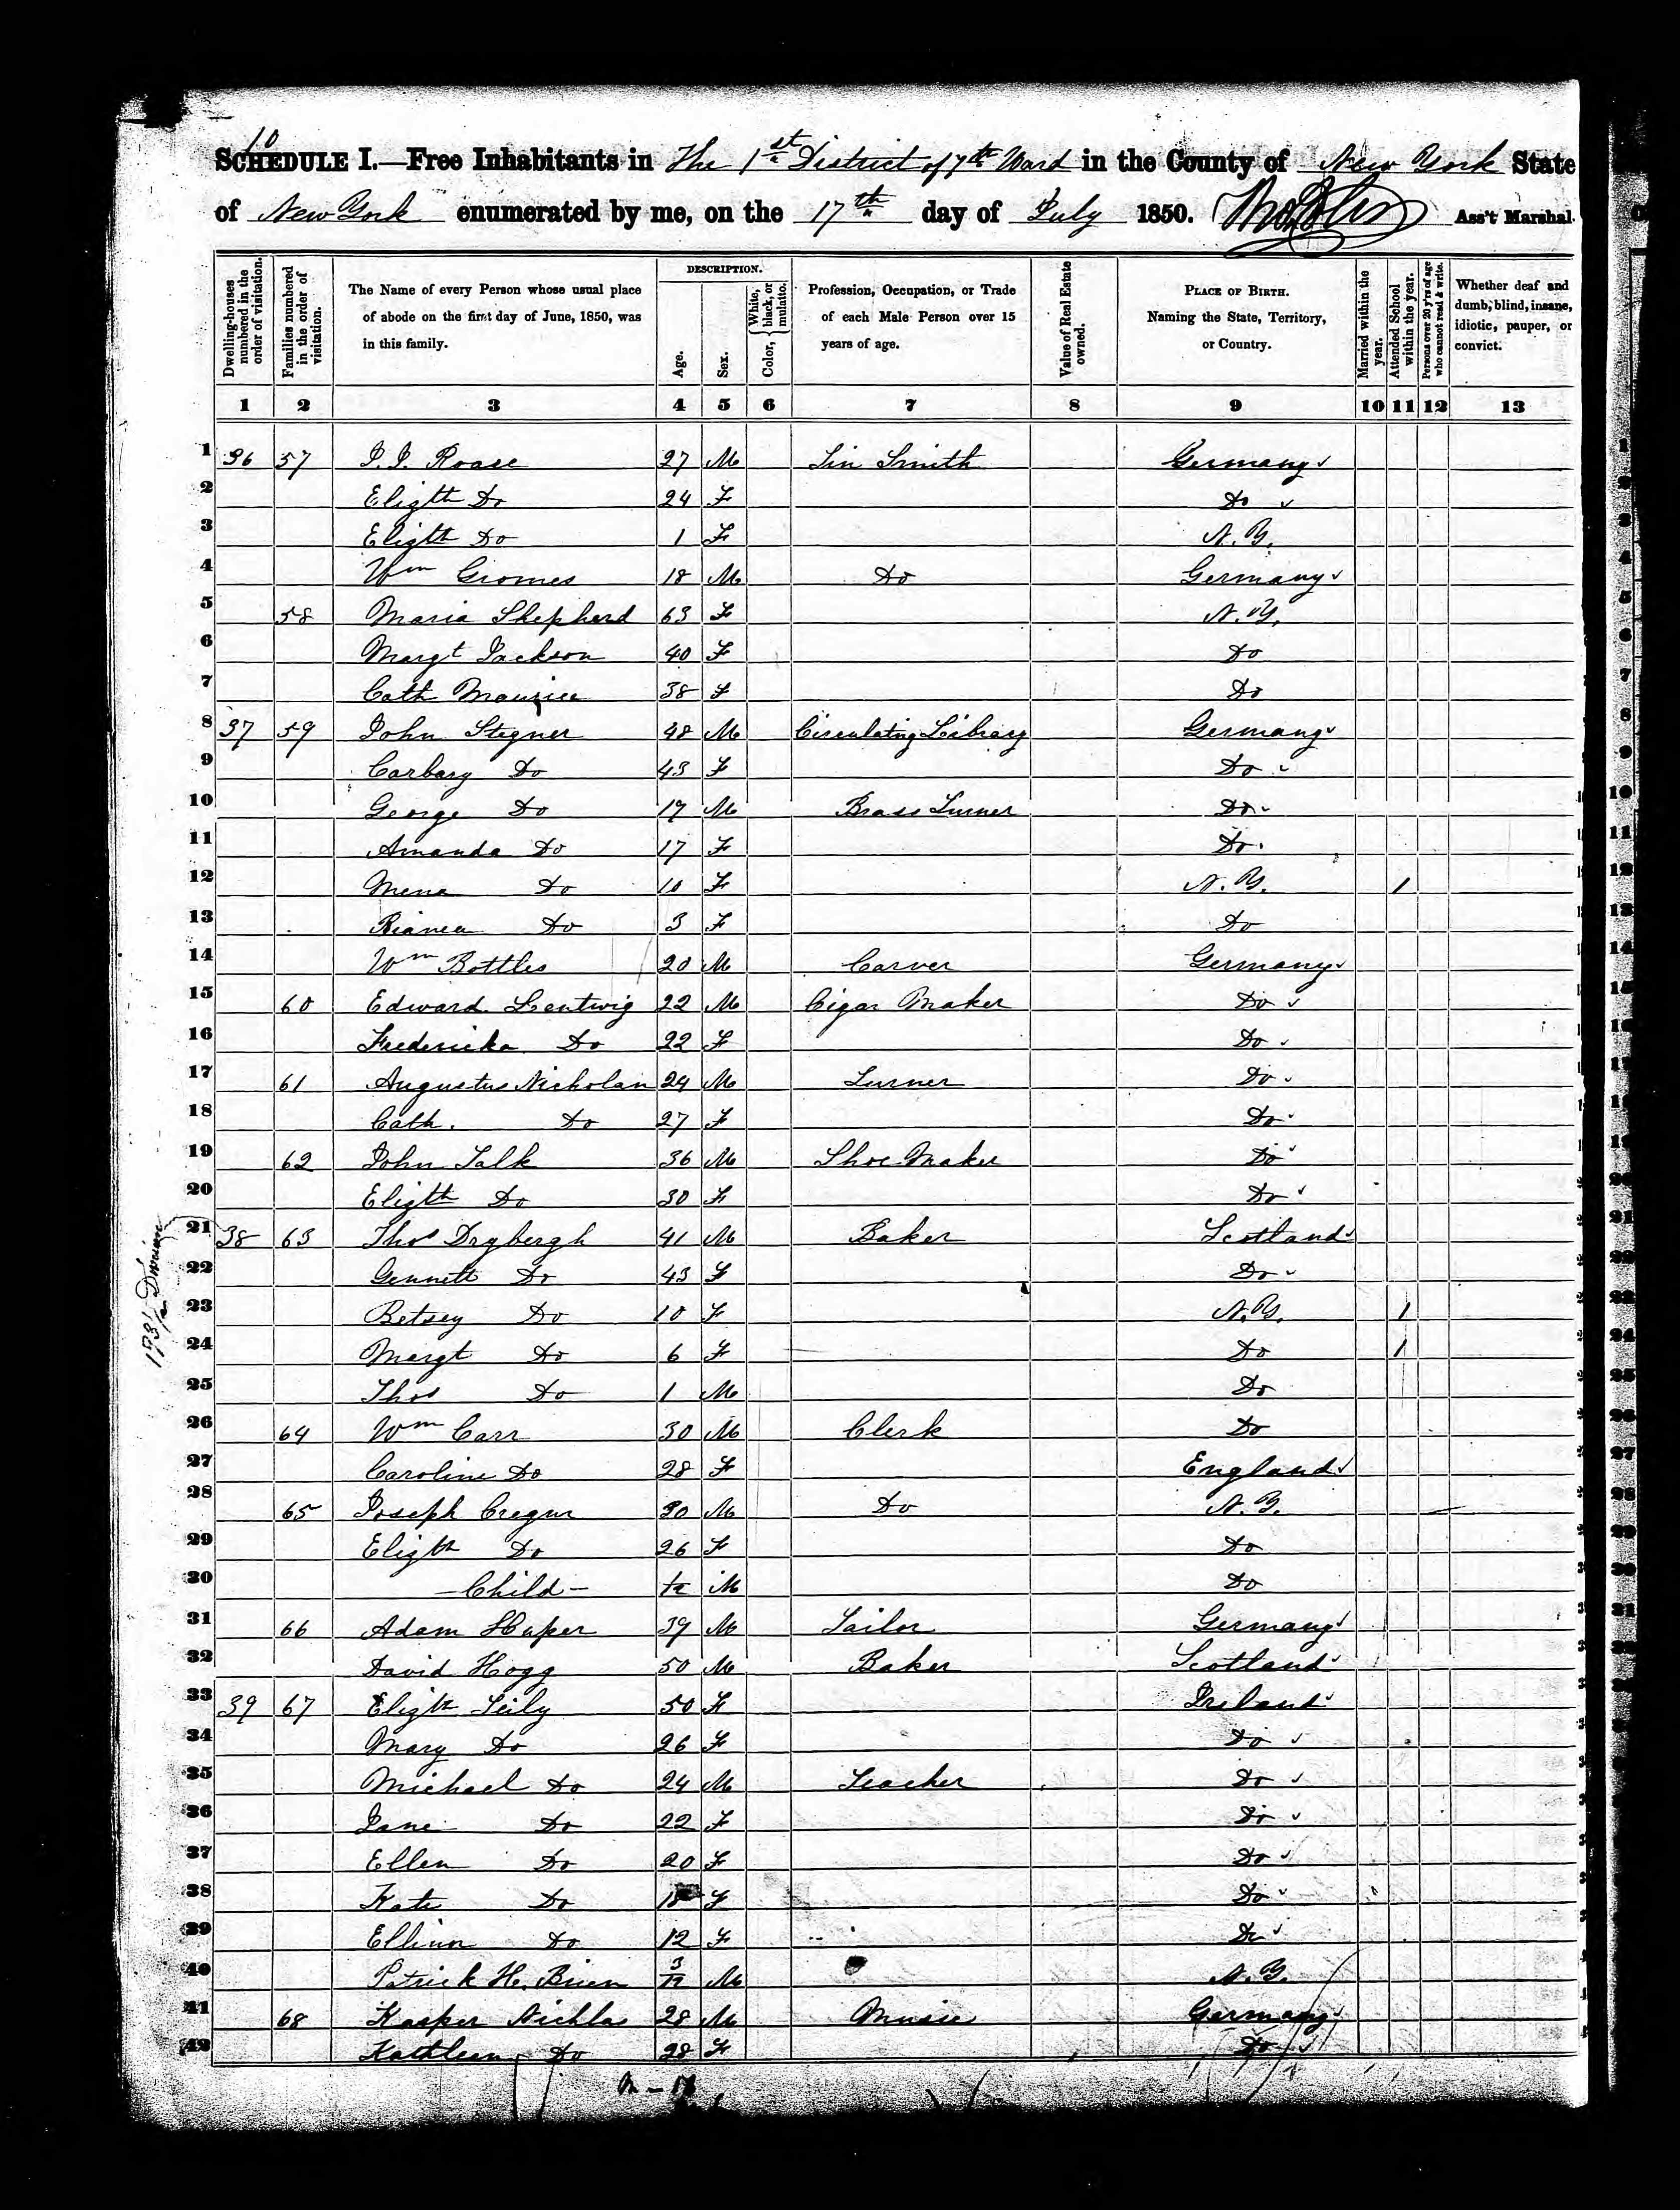 10
SCHEDULE I.—Free Inhabitants in The 1st District of 7th Ward in the County of New York State
of New York enumerated by me, on the 17th day of July 1850. Ass't Marshal.
Dwelling-houses numbered in the order of visitation.
Families numbered in the order of visitation.
The Name of every Person whose usual place of abode on the first day of June, 1850, was in this family.
DESCRIPTION.
Age.
Sex.
Color, White, black, or mulatto.
Profession, Occupation, or Trade of each Male Person over 15 years of age.
Value of Real Estate owned.
PLACE OF BIRTH. Naming the State, Territory, or Country.
Married within the year.
Attended School within the year.
Persons over 20 y'rs of age who cannot read & write.
Whether deaf and dumb, blind, insane, idiotic, pauper, or convict.
1 2 3 4 5 6 7 8 9 10 11 12 13
1 36 57 J. J. Roase 27 M Tin Smith Germany
2 Elizth Do 24 F Do
3 Elizth Do 1 F N.Y.
4 Wm Gromes 18 M Do Germany
5 58 Maria Shepherd 63 F N.Y.
6 Margt Jackson 40 F Do
7 Cath Maurice 38 F Do
8 37 59 John Stegner 48 M Circulating Library Germany
9 Carbary Do 43 F Do
10 George Do 19 M Brass Turner Do
11 Amanda Do 17 F Do
12 Mena Do 10 F N.Y. 1
13 Bianca Do 3 F Do
14 Wm Bottles 20 M Carver Germany
15 60 Edward Lentwig 22 M Cigar Maker Do
16 Fredericka Do 22 F Do
17 61 Augustus Nicholan 29 M Turner Do
18 Cath. Do 27 F Do
19 62 John Talk 36 M Shoe Maker Do
20 Elizth Do 30 F Do
21 38 63 Thos Drybergh 41 M Baker Scotland
22 Gennett Do 43 F Do
23 Betsey Do 10 F N.Y. 1
24 Margt Do 6 F Do 1
25 Thos Do 1 M Do
26 64 Wm Carr 30 M Clerk Do
27 Caroline Do 28 F England
28 65 Joseph Cregur 30 M Do N.Y.
29 Elizth Do 26 F Do
30 —Child— M Do
31 66 Adam Haper 39 M Tailor Germany
32 David Hogg 50 M Baker Scotland
33 39 67 Elizth Leily 50 F Ireland
34 Mary Do 26 F Do
35 Michael Do 24 M Teacher Do
36 Jane Do 22 F Do
37 Ellen Do 20 F Do
38 Kate Do F Do
39 Ellinn Do 12 F Do
40 Patrick H. Brien 3/12 M N.Y.
41 68 Kasper Nichlas 28 M Music Germany
42 Kathleen Do 28 F Do